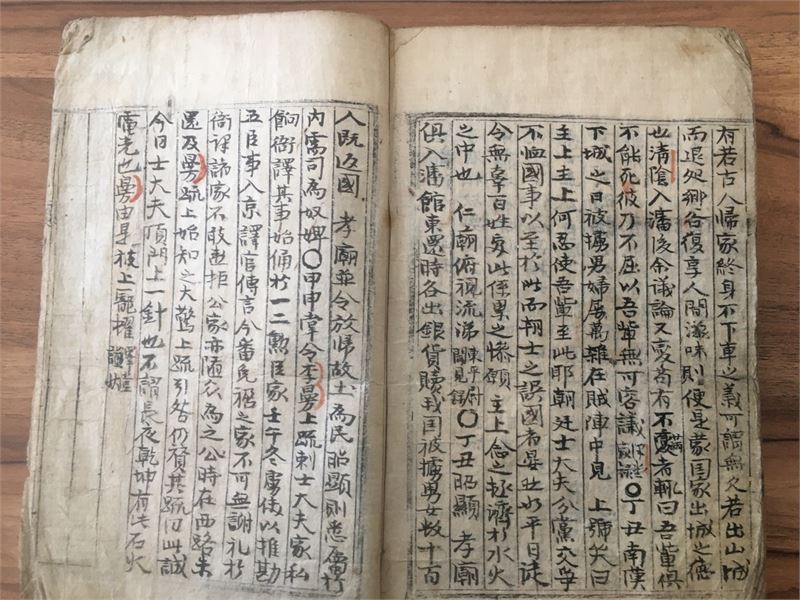 有若古人歸家終身不下車之義可謂無久若出山城
而退處鄉谷復享人間滋味則便是蒙国家出城之德
也清陰入瀋後余議論又變前有不變者輒曰吾輩俱
不能死彼刀不屈以吾輩無可容議 〇丁丑南漢
下城之日被擄男婦屢萬雜在賊陣中見 上號哭曰
主上主上何忍使吾輩至此耶朝廷士大夫分黨交爭
不恤國事以至於此而朝士之誤國者晏然水平日徒
令無辜百姓受此係累之慘願 主上念之拯濟於水火
之中也 仁廟俯視流涕 聞見錄 〇丁丑昭顯 孝廟
俱入瀋館東還時各出銀貨贖我国被擄男女数十百
人既返國 孝廟並令放歸故土為民昭顯則悉屬於
內需司為奴婢〇甲申掌令李曼上疏刺士大夫家私
餉衙譯其事始俑於一二勳臣家壬午冬虜使以推勘
五臣事入京譯官傳言今番免禍之家不可無謝礼於
衙譯諸家不敢拒公家亦隨众為之公時在西路未
還及曼疏上始知之大驚上疏引咎仍贊其疏曰此誠
今日士大夫頂門上一針也不謂長夜乾坤有此石火
電光也曼由是被上寵擢